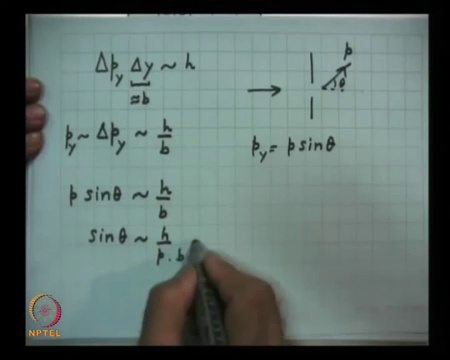 Δp_y Δy ~ h
≈b
p_y ~ Δp_y ~ h/b
p sinθ ~ h/b
sinθ ~ h/p.b
p
θ
p_y = p sinθ
NPTEL